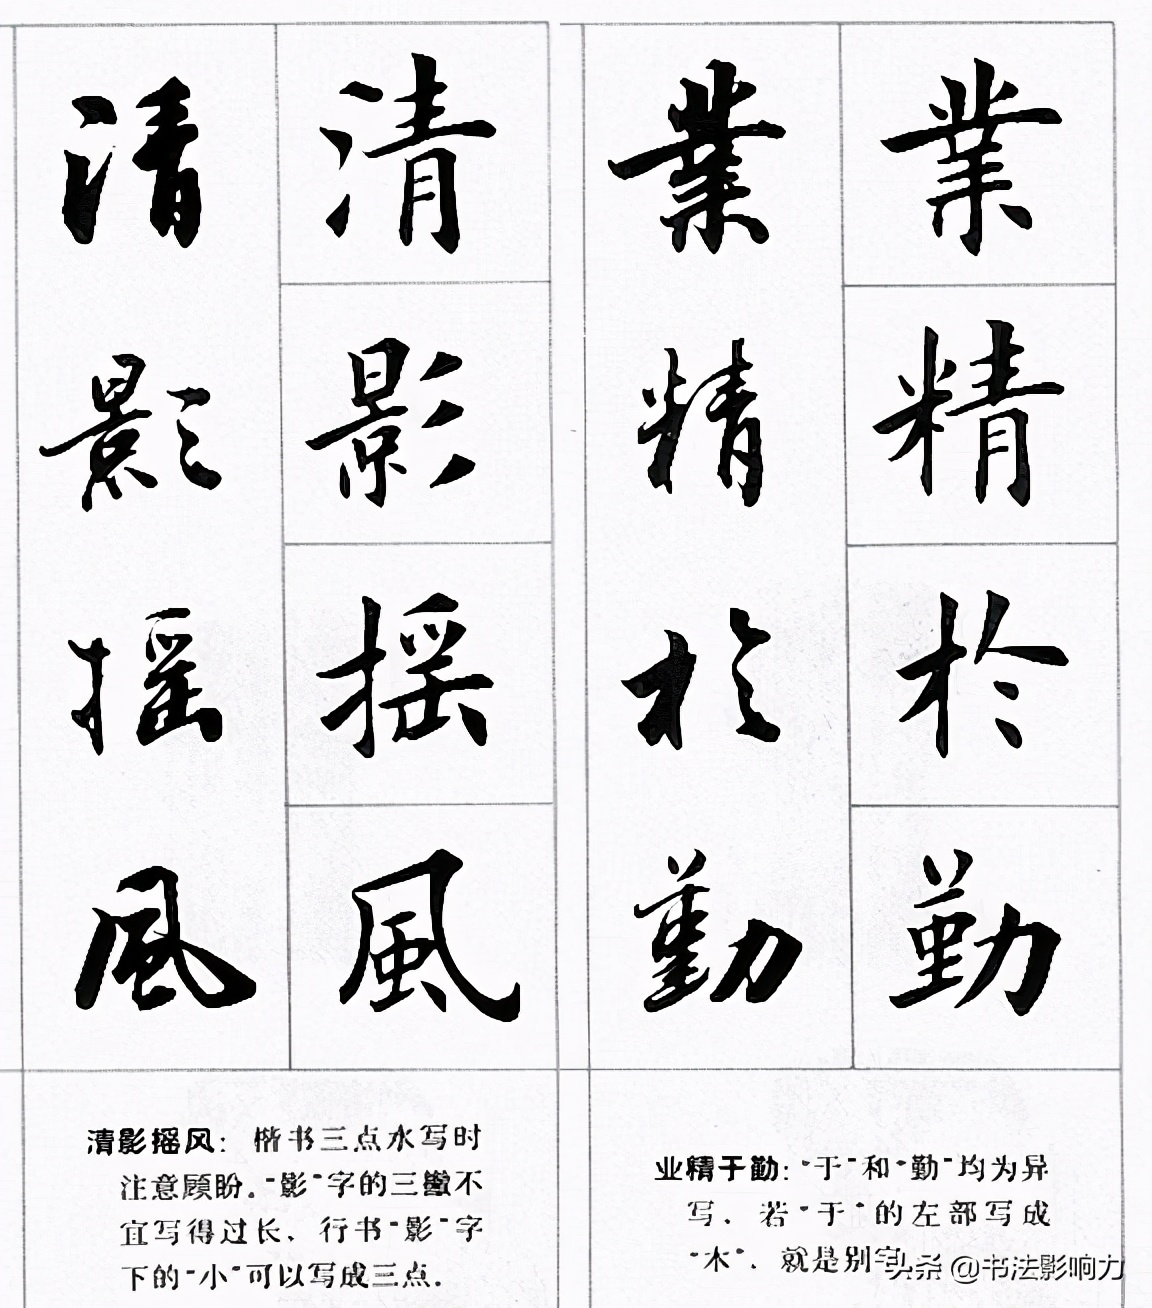 業精於勤
業精於勤
清影摇風
清影摇風
业精于勤：“于”和“勤”均为异
写，若“于”的左部写成
“木”，就是别字。
清影摇风：楷书三点水写时
注意顾盼。“影”字的三撇不
宜写得过长，行书“影”字
下的“小”可以写成三点。
头条 @书法影响力